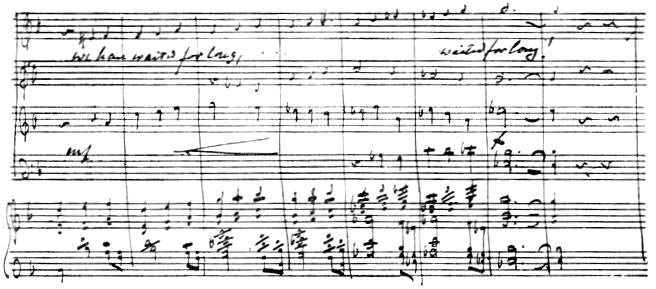 we have waited for long, waited for long!
mp
f